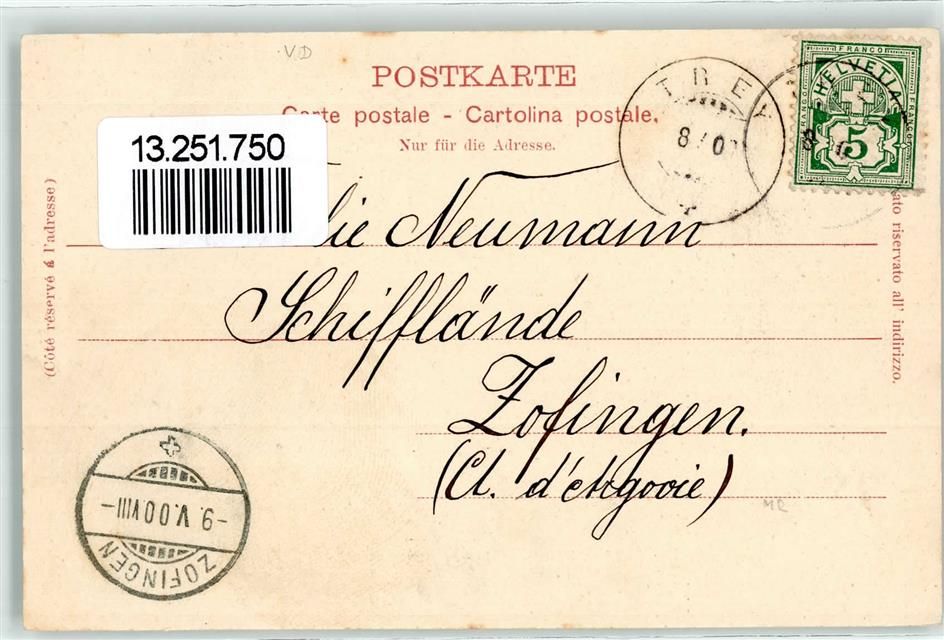 VD
POSTKARTE
Carte postale - Cartolina postale.
Nur für die Adresse.
13.251.750
TREY
8
FRANCO
HELVETIA
FRANCO
FRANCO
5
(Côté réservé à l'adresse)
lie Neumann
Schifflände
Zofingen.
(Ct. d'Argovie)
ato riservato all' indirizzo.
MR
-9.V.00.VIII-
ZOFINGEN